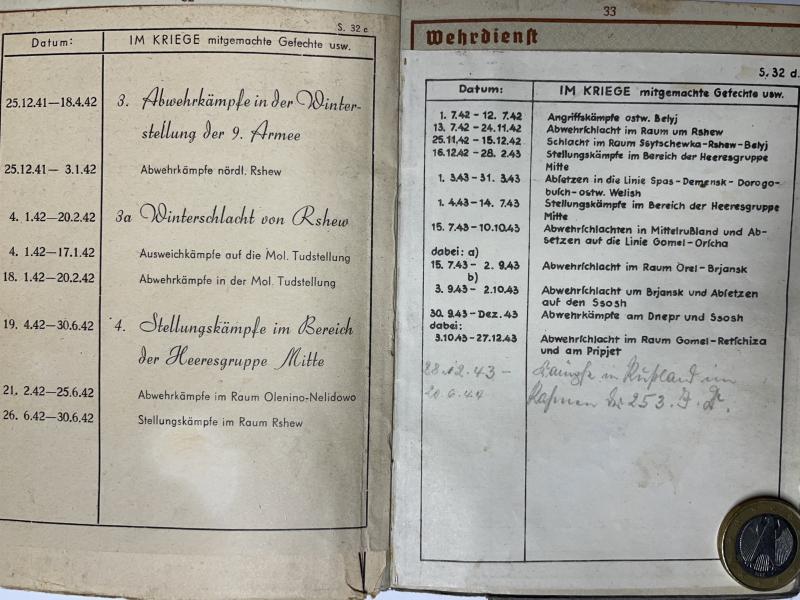 S. 32 c
Datum: IM KRIEGE mitgemachte Gefechte usw.
25.12.41—18.4.42 3. Abwehrkämpfe in der Winter-
stellung der 9. Armee
25.12.41— 3.1.42 Abwehrkämpfe nördl. Rshew
4. 1.42—20.2.42 3a Winterschlacht von Rshew
4. 1.42—17.1.42 Ausweichkämpfe auf die Mol. Tudstellung
18. 1.42—20.2.42 Abwehrkämpfe in der Mol. Tudstellung
19. 4.42—30.6.42 4. Stellungskämpfe im Bereich
der Heeresgruppe Mitte
21. 2.42—25.6.42 Abwehrkämpfe im Raum Olenino-Nelidowo
26. 6.42—30.6.42 Stellungskämpfe im Raum Rshew
33
Wehrdienst
S. 32 d.
Datum: IM KRIEGE mitgemachte Gefechte usw.
1. 7.42 - 12. 7.42 Angriffskämpfe ostw. Belyj
13. 7.42 - 24.11.42 Abwehrschlacht im Raum um Rshew
25.11.42 - 15.12.42 Schlacht im Raum Ssytschewka-Rshew-Belyj
16.12.42 - 28. 2.43 Stellungskämpfe im Bereich der Heeresgruppe
Mitte
1. 3.43 - 31. 3.43 Absetzen in die Linie Spas-Demensk-Dorogo-
busch-ostw. Welish
1. 4.43 - 14. 7.43 Stellungskämpfe im Bereich der Heeresgruppe
Mitte
15. 7.43 - 10.10.43 Abwehrschlachten in Mittelrußland und Ab-
setzen auf die Linie Gomel-Orscha
dabei: a)
15. 7.43 - 2. 9.43 Abwehrschlacht im Raum Orel-Brjansk
b)
3. 9.43 - 2.10.43 Abwehrschlacht um Brjansk und Absetzen
auf den Ssosh
30. 9.43 - Dez. 43 Abwehrkämpfe am Dnepr und Ssosh
dabei:
3.10.43 - 27.12.43 Abwehrschlacht im Raum Gomel-Retschiza
und am Pripjet
28.12.43 - Kämpfe in Rußland im
20.6.44 Rahmen der 253. I. D.